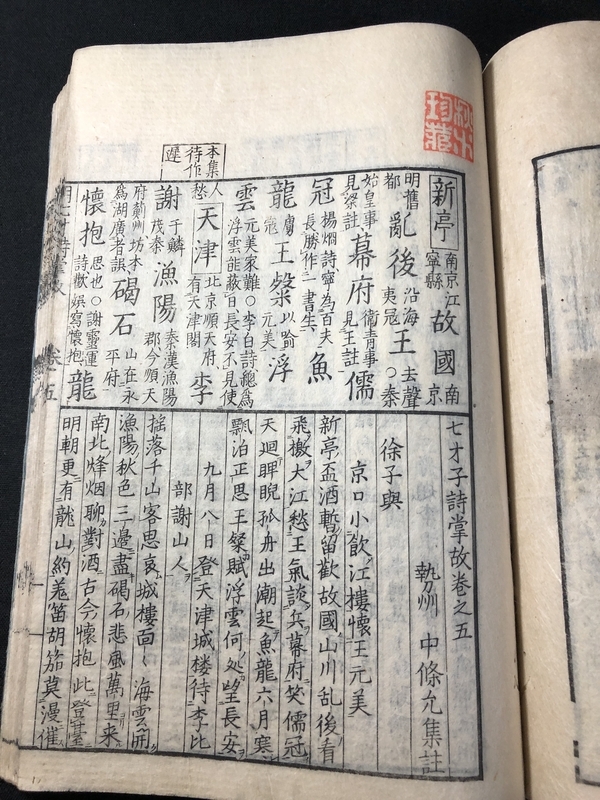 新亭 南京江寧縣 故國 南京
明舊都 亂後 沿海夷冦 王 去聲○秦
始皇事見梁註 幕府 衛青事見王註 儒
冠 揚烱詩寧為百夫長勝作一書生 魚
龍 膚冦 王粲 以踰元美 浮
雲 元美家難○李白詩總為浮雲能蔽日長安不見使
人愁 天津 北京順天府有天津閣 李
本集待作遲
謝 于鱗茂秦 漁陽 秦漢漁陽郡今順天
府薊州坊本為湖廣者誤 碣石 山在永平府
懷抱 思也○謝靈運詩歡娯寫懷抱 龍
七才子詩掌故卷之五
勢州 中條允集註
徐子與
京口小飲江樓懷王元美
新亭盃酒暫留歡故國山川乱後看
飛檄大江愁王氣談兵幕府笑儒冠
天迴睥睨孤舟出潮起魚龍六月寒
飄泊正思王粲賦浮雲何処望長安
九月八日登天津城楼待李比
部謝山人
搖落千山客思哀城樓面〻海雲開
漁陽秋色三邊盡碣石悲風萬里来
南北烽烟聊對酒古今懷抱此登臺
明朝更有龍山約羌笛胡笳莫漫催
珍藏